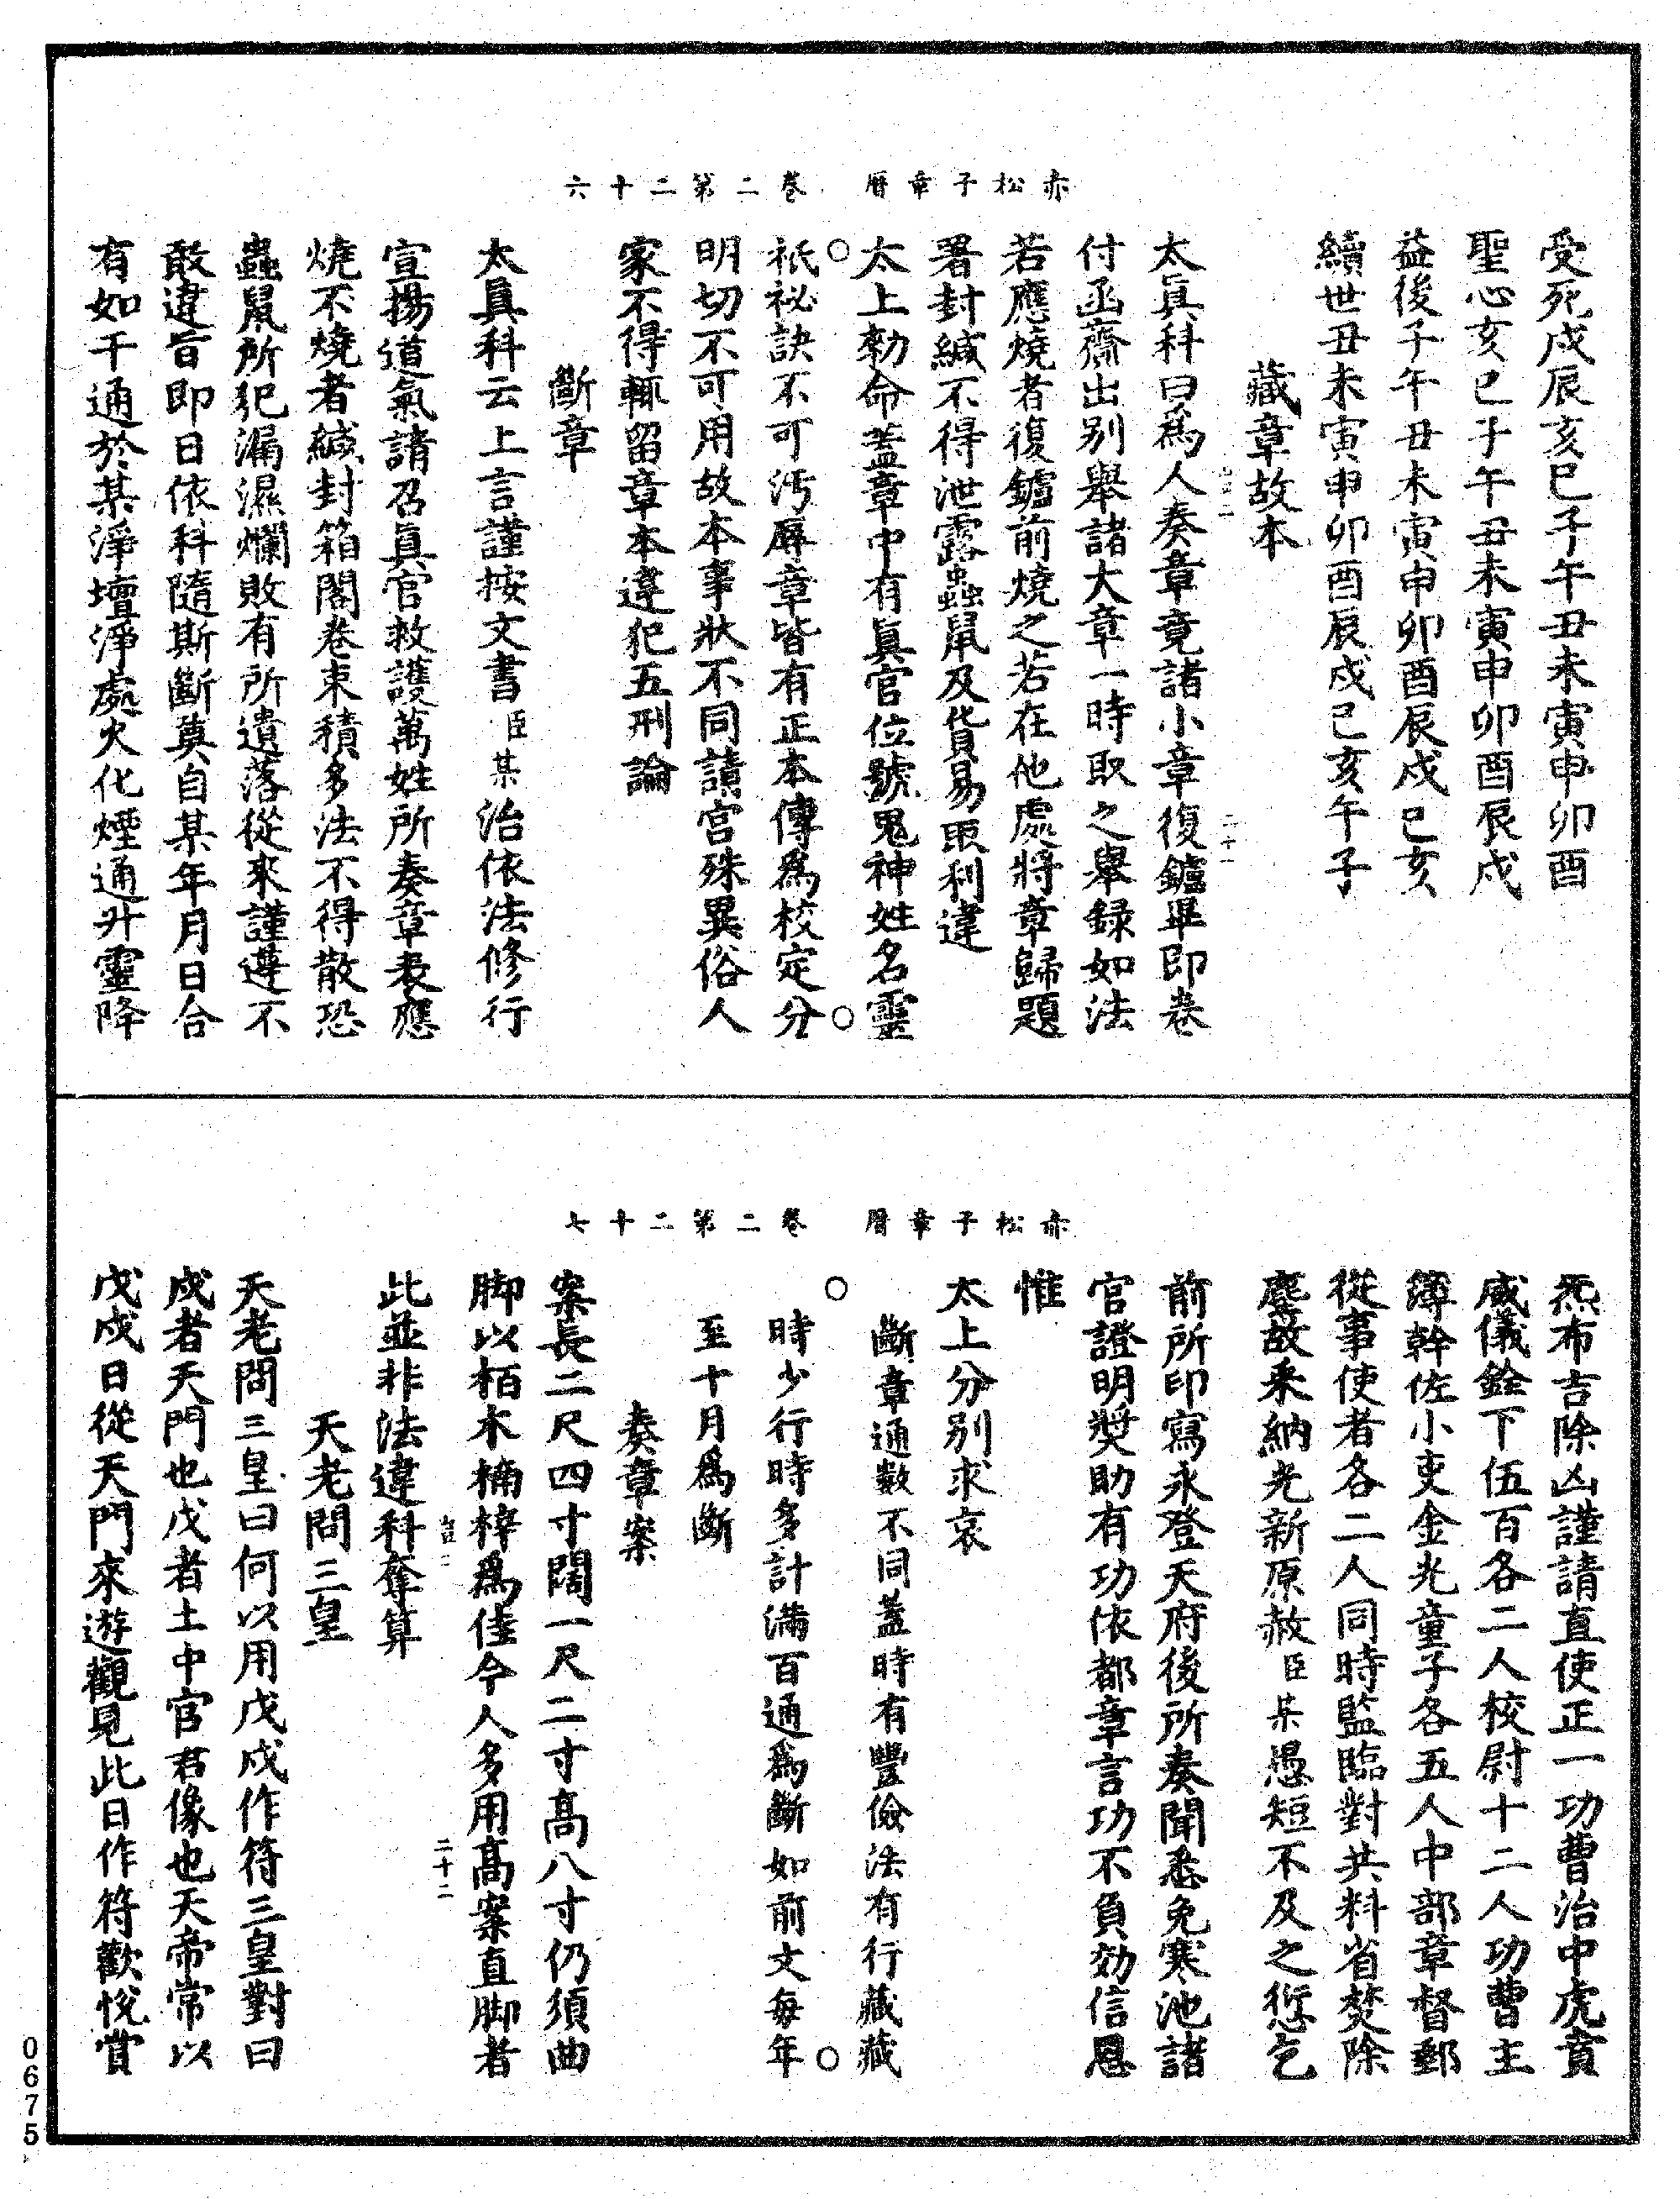 赤松子章曆　卷二第二十六
受死戌辰亥巳子午丑未寅申卯酉
聖心亥巳子午丑未寅申卯酉辰戌
益後子午丑未寅申卯酉辰戌巳亥
續世丑未寅申卯酉辰戌巳亥午子
藏章故本
二十一
太眞科曰爲人奏章竟諸小章復鑪畢即卷
付函齋出別舉諸大章一時取之舉録如法
若應燒者復鑪前燒之若在他處將章歸題
署封緘不得泄露蟲鼠及貨易取利違
太上勑命蓋章中有眞官位號鬼神姓名靈
祇祕訣不可汚辱章皆有正本傳爲校定分
明切不可用故本事狀不同請官殊異俗人
家不得輒留章本違犯五刑論
斷章
太眞科云上言謹按文書臣某治依法修行
宣揚道氣請召眞官救護萬姓所奏章表應
燒不燒者緘封箱閣卷束積多法不得散恐
蟲鼠所犯漏濕爛敗有所遺落從來謹遵不
敢違旨即日依科隨斯斷奠自某年月日合
有如干通於某淨壇淨處火化煙通升靈降
赤松子章曆　卷二第二十七
炁布吉除凶謹請直使正一功曹治中虎賁
威儀銓下伍百各二人校尉十二人功曹主
簿幹佐小吏金光童子各五人中部章督郵
從事使者各二人同時監臨對共料省焚除
塵故釆納光新原赦臣某愚短不及之愆乞
前所印寫永登天府後所奏聞悉免寒池諸
官證明奬助有功依都章言功不負効信恩
惟
太上分別求哀
斷章通數不同蓋時有豐儉法有行藏藏
時少行時多計滿百通爲斷如前文每年
至十月爲斷
奏章案
案長二尺四寸闊一尺二寸高八寸仍須曲
脚以栢木楠梓爲佳今人多用高案直脚者
二十二
此並非法違科奪算
天老問三皇
天老問三皇曰何以用戊戌作符三皇對曰
戌者天門也戊者土中宮君像也天帝常以
戊戌日從天門來遊觀見此日作符歡悅賞
0675